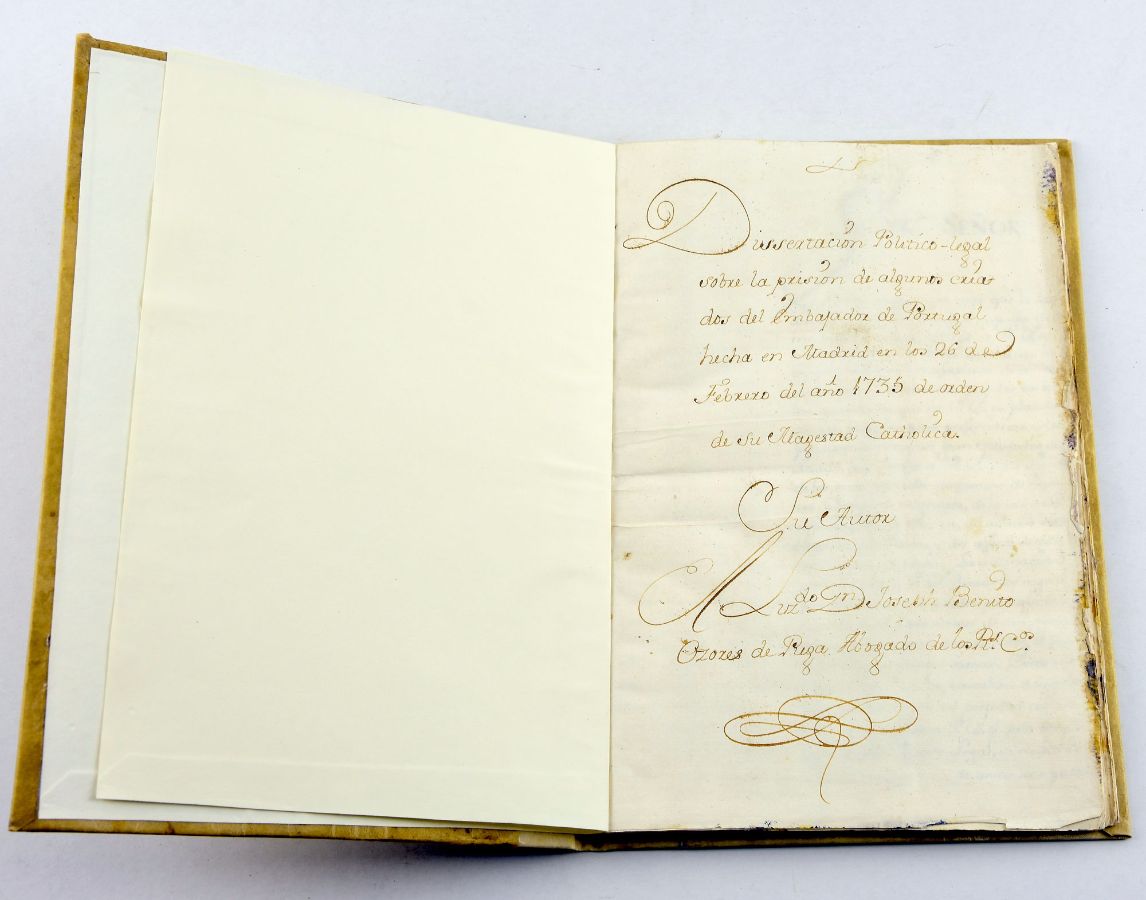 Dissertación Politico-legal
sobre la prisión de algunos cria-
dos del embajador de Portugal
hecha en Madrid en los 26 de
Febrero del año 1735 de orden
de Su Magestad Catholica.
Su Autor
Al Lizdo Dn Joseph Benito
Ozores de Puga Abogado de los Rs. Cos.